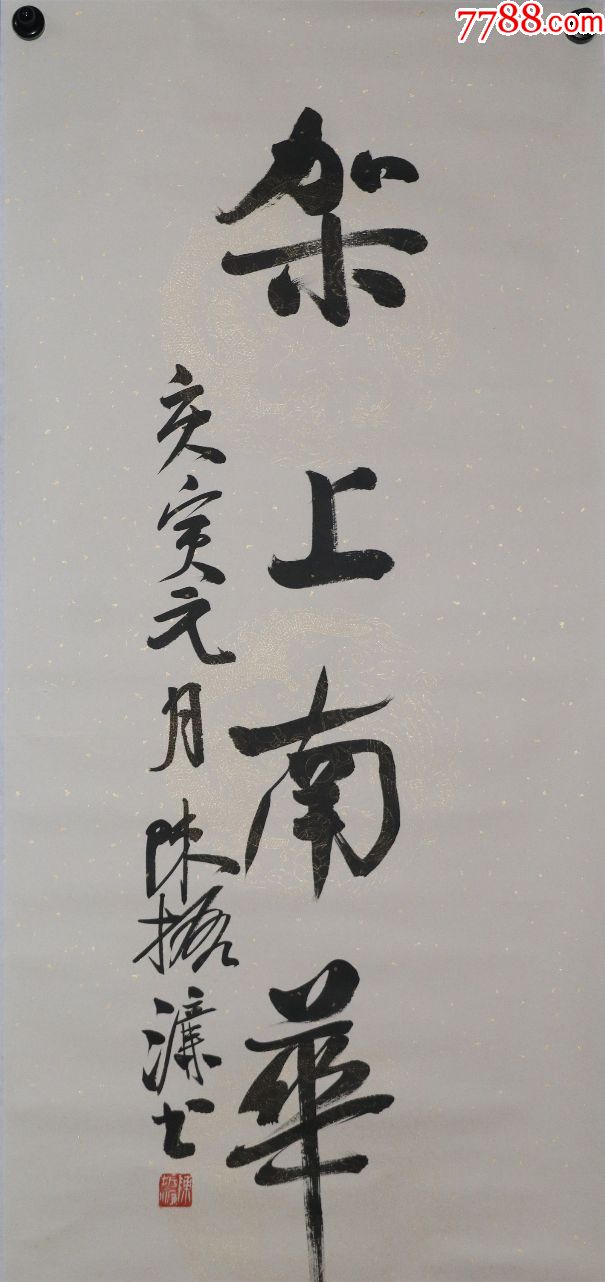 7788.com
架上南華
庚寅元月陳振濂书